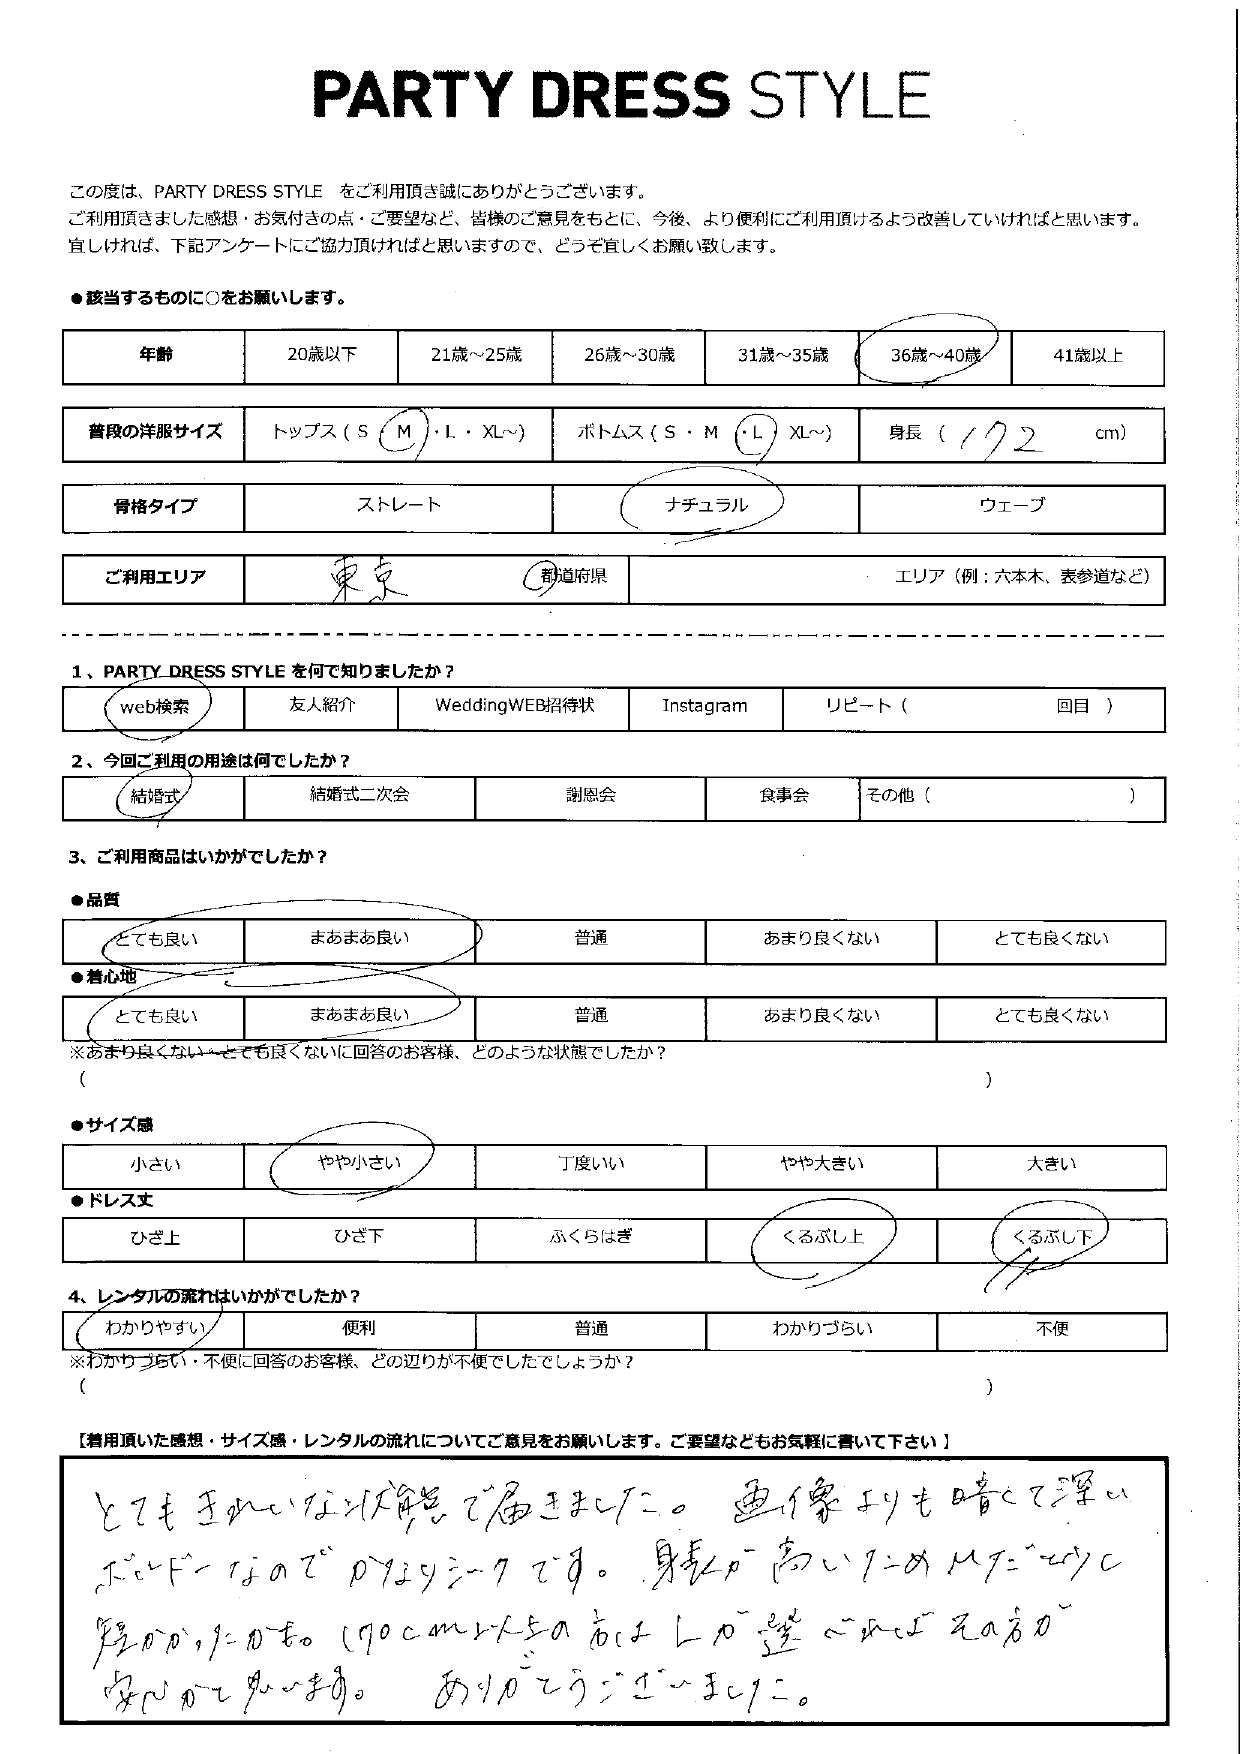 PARTY DRESS STYLE
この度は、PARTY DRESS STYLE をご利用頂き誠にありがとうございます。
ご利用頂きました感想・お気付きの点・ご要望など、皆様のご意見をもとに、今後、より便利にご利用頂けるよう改善していければと思います。
宜しければ、下記アンケートにご協力頂ければと思いますので、どうぞ宜しくお願い致します。
●該当するものに○をお願いします。
年齢 20歳以下 21歳～25歳 26歳～30歳 31歳～35歳 36歳～40歳 41歳以上
普段の洋服サイズ トップス ( S M ・L ・ XL～) ボトムス ( S ・ M ・L XL～) 身長 ( 172 cm)
骨格タイプ ストレート ナチュラル ウェーブ
ご利用エリア 東京 都道府県 エリア（例：六本木、表参道など）
1、PARTY DRESS STYLE を何で知りましたか？
web検索 友人紹介 WeddingWEB招待状 Instagram リピート ( 回目 )
2、今回ご利用の用途は何でしたか？
結婚式 結婚式二次会 謝恩会 食事会 その他 ( )
3、ご利用商品はいかがでしたか？
●品質
とても良い まあまあ良い 普通 あまり良くない とても良くない
●着心地
とても良い まあまあ良い 普通 あまり良くない とても良くない
※あまり良くない・とても良くないに回答のお客様、どのような状態でしたか？
( )
●サイズ感
小さい やや小さい 丁度いい やや大きい 大きい
●ドレス丈
ひざ上 ひざ下 ふくらはぎ くるぶし上 くるぶし下
4、レンタルの流れはいかがでしたか？
わかりやすい 便利 普通 わかりづらい 不便
※わかりづらい・不便に回答のお客様、どの辺りが不便でしたでしょうか？
( )
【着用頂いた感想・サイズ感・レンタルの流れについてご意見をお願いします。ご要望などもお気軽に書いて下さい 】
とてもきれいな状態で届きました。 画像よりも暗くて深い
ボルドーなのでかなりシークです。身長が高いためMだと少し
短かかったかも。170cm以上の方はLが選べればその方が
安心かと思います。 ありがとうございました。